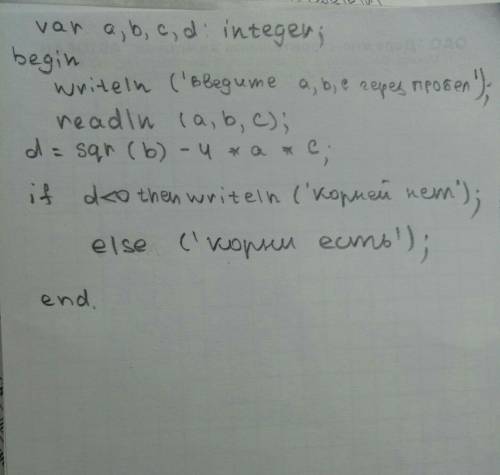 var a, b, c, d: integer;
begin
writeln ('введите a, b, c через пробел');
readln (a, b, c);
d = sqr (b) - 4 * a * c;
if d<0 then writeln ('корней нет');
else ('корни есть');
end.